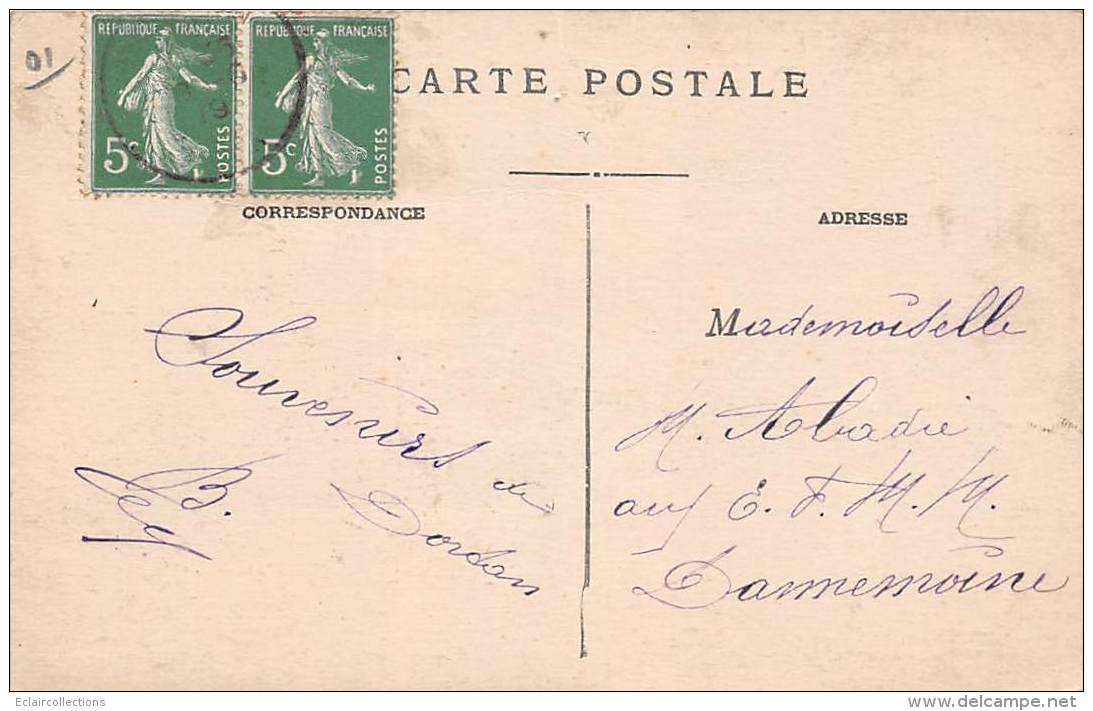 01
REPUBLIQUE FRANÇAISE
5c
POSTES
REPUBLIQUE FRANÇAISE
5c
POSTES
CARTE POSTALE
CORRESPONDANCE
ADRESSE
Souvenirs de
Dortan
B.
Mademoiselle
M. Abadie
aux E. F. M. M.
Dannemoine
Eclaircollections
delcampe.net